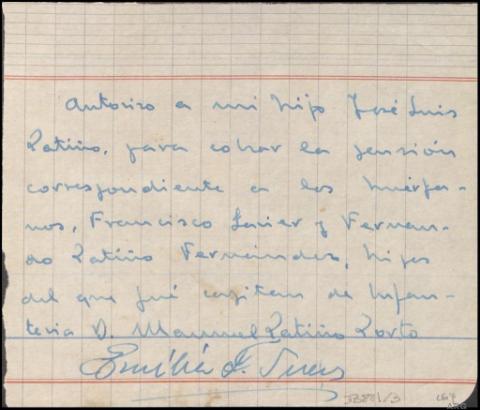 Autorizo a mi hijo José Luis
Patiño, para cobrar la pensión
correspondiente a los huérfa-
nos, Francisco Javier y Fernan-
do Patiño Fernández, hijos
del que fué capitan de Infan-
teria D. Manuel Patiño Porto
Emilia F.